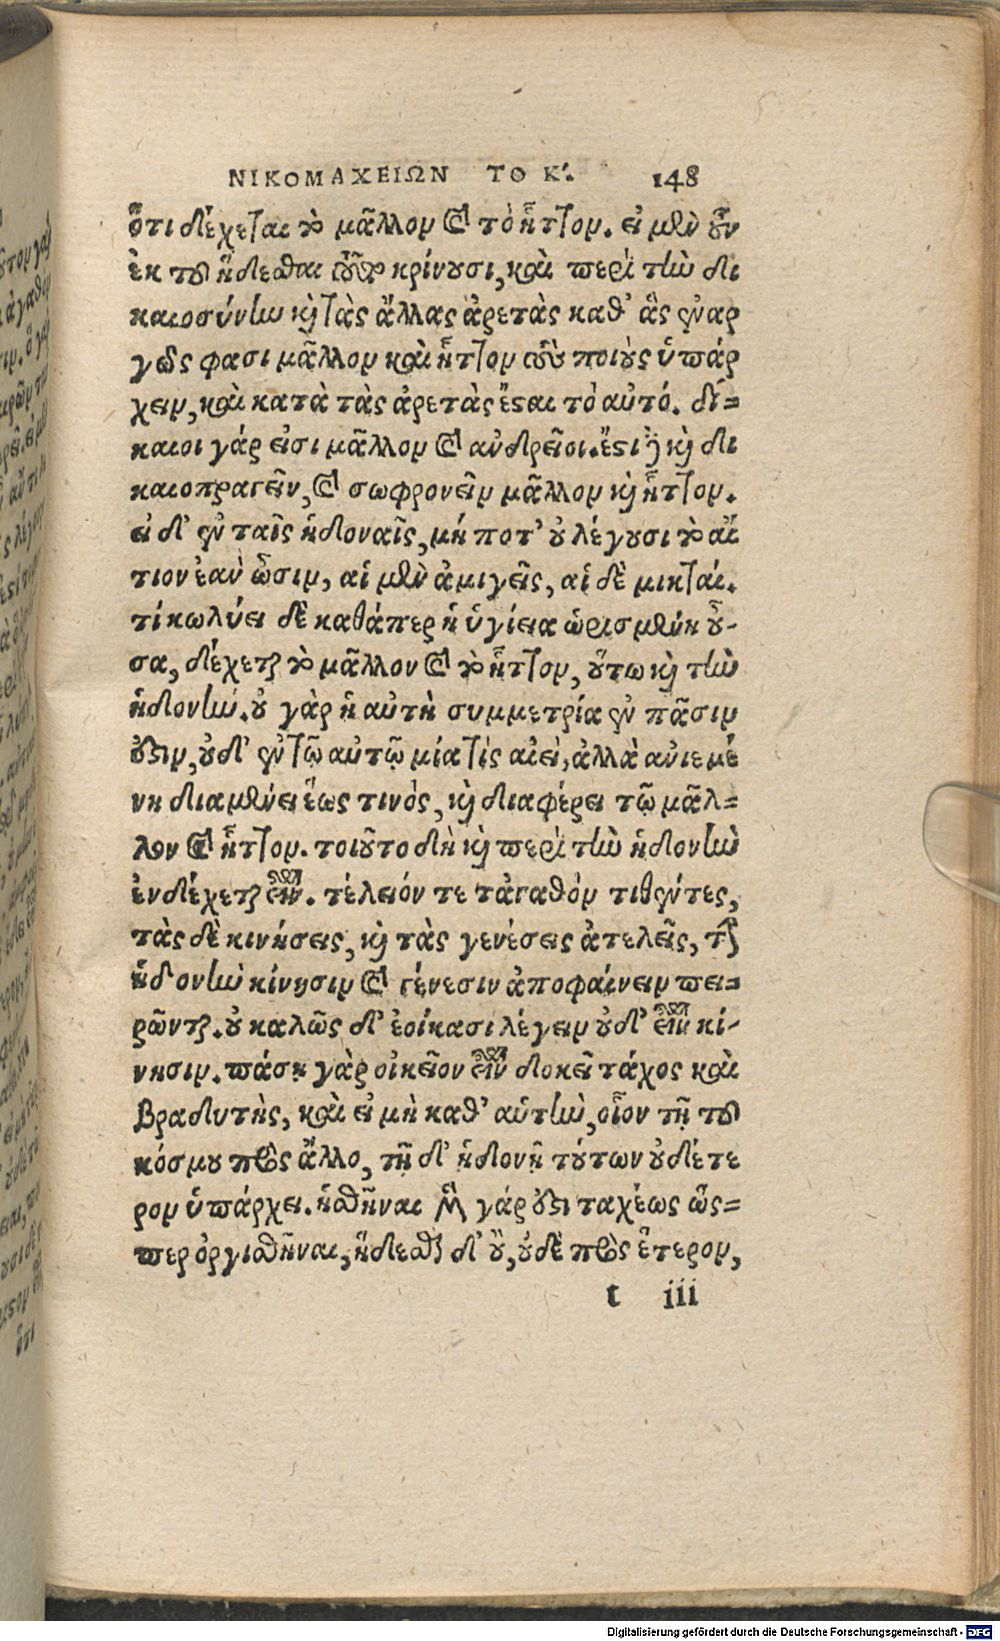 ΝΙΚΟΜΑΧΕΙΩΝ ΤΟ Κ´. 148
ὅτι δέχεται τὸ μᾶλλον καὶ τὸ ἧττον. εἰ μὲν οὖν
ἐκ τοῦ ἥδεσθαι τοῦτο κρίνουσι, καὶ περὶ τὴν δι
καιοσύνην καὶ τὰς ἄλλας ἀρετὰς καθ' ἃς ἐναρ
γῶς φασι μᾶλλον καὶ ἧττον τοὺς ποιοὺς ὑπάρ
χειν, καὶ κατὰ τὰς ἀρετὰς ἔσται τὸ αὐτό. δί-
καιοι γάρ εἰσι μᾶλλον καὶ ἀνδρεῖοι. ἔστι δὲ καὶ δι
καιοπραγεῖν, καὶ σωφρονεῖν μᾶλλον καὶ ἧττον.
εἰ δ' ἐν ταῖς ἡδοναῖς, μή ποτ' οὐ λέγουσι τὸ αἴ
τιον ἐὰν ὦσιν, αἱ μὲν ἀμιγεῖς, αἱ δὲ μικταί.
τί κωλύει δὲ καθάπερ ἡ ὑγίεια ὡρισμένη οὖ-
σα, δέχεται τὸ μᾶλλον καὶ τὸ ἧττον, οὕτω καὶ τὴν
ἡδονήν. οὐ γὰρ ἡ αὐτὴ συμμετρία ἐν πᾶσιν
ἐστιν, οὐδ' ἐν τῷ αὐτῷ μία τὶς αἰεὶ, ἀλλὰ ἀνιεμέ
νη διαμένει ἕως τινός, καὶ διαφέρει τῷ μᾶλ-
λον καὶ ἧττον. τοιοῦτο δὴ καὶ περὶ τὴν ἡδονὴν
ἐνδέχεται εἶναι. τέλειόν τε τἀγαθὸν τιθέντες,
τὰς δὲ κινήσεις, καὶ τὰς γενέσεις ἀτελεῖς, τὴν
ἡδονὴν κίνησιν καὶ γένεσιν ἀποφαίνειν πει-
ρῶνται. οὐ καλῶς δ' ἐοίκασι λέγειν οὐδ' εἶναι κί-
νησιν. πάσῃ γὰρ οἰκεῖον εἶναι δοκεῖ τάχος καὶ
βραδυτὴς, καὶ εἰ μὴ καθ' αὑτὴν, οἷον τῇ τοῦ
κόσμου πρὸς ἄλλο, τῇ δ' ἡδονῇ τούτων οὐδέτε
ρον ὑπάρχει. ἡσθῆναι μὲν γάρ ἐστι ταχέως ὥσ-
περ ὀργισθῆναι, ἥδεσθαι δ' οὔ, οὐδὲ πρὸς ἕτερον,
t iii
Digitalisierung gefördert durch die Deutsche Forschungsgemeinschaft - DFG